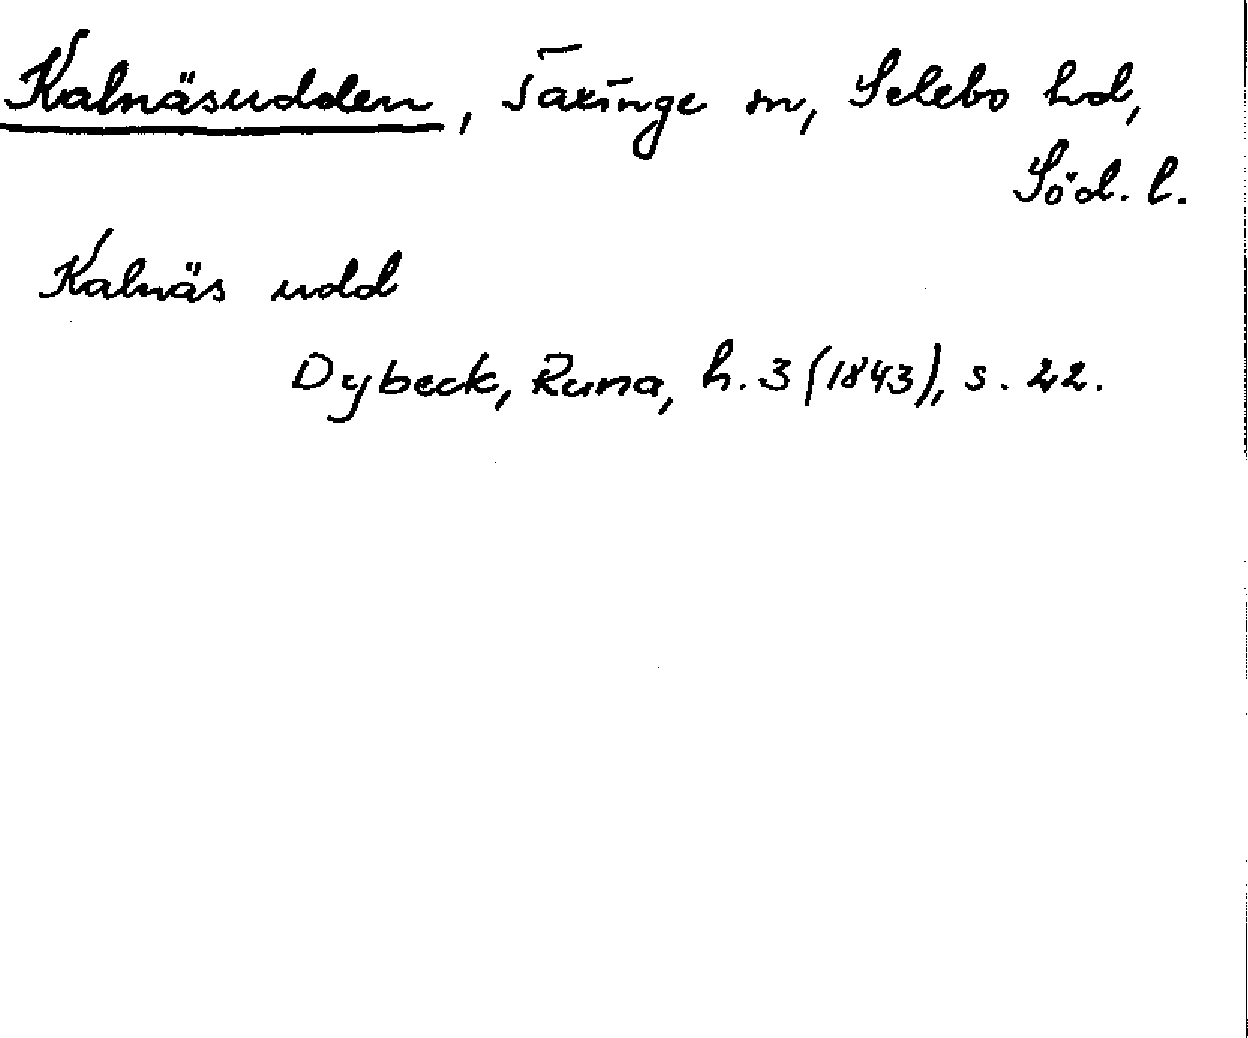 Kalnäsudden, Taxinge sn, Selebo hd,
Söd. l.
Kalnäs udd
Dybeck, Runa, h. 3 (1843), s. 22.